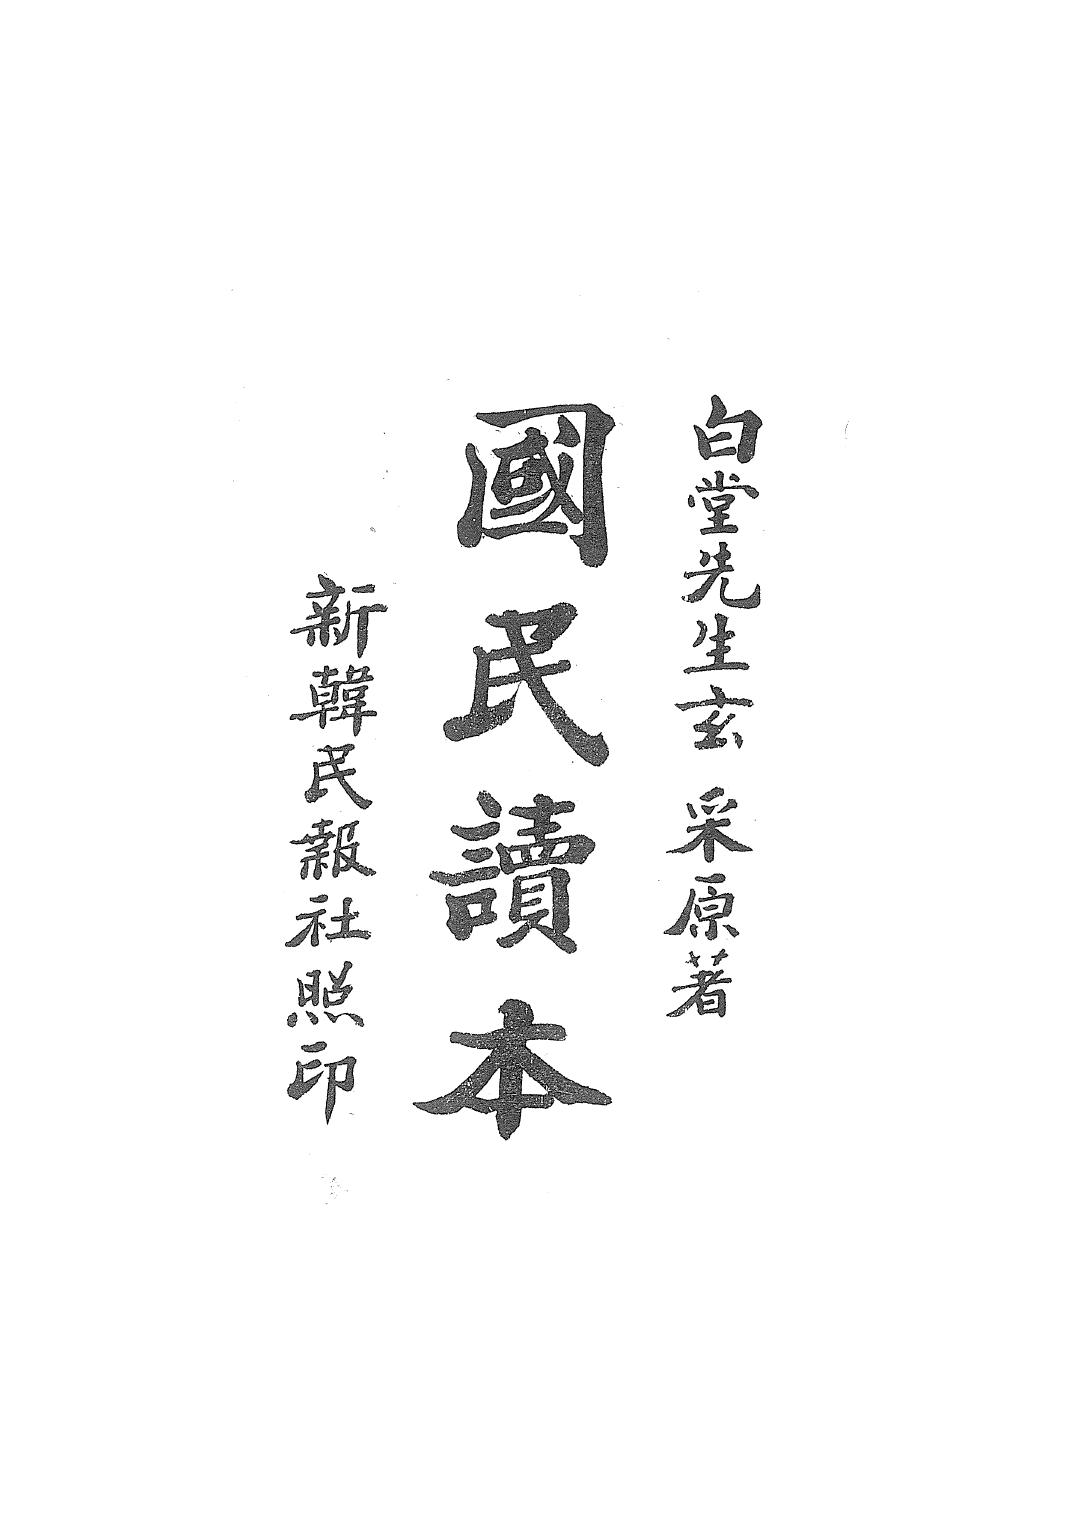 白堂先生玄 采原著
國民讀本
新韓民報社照印